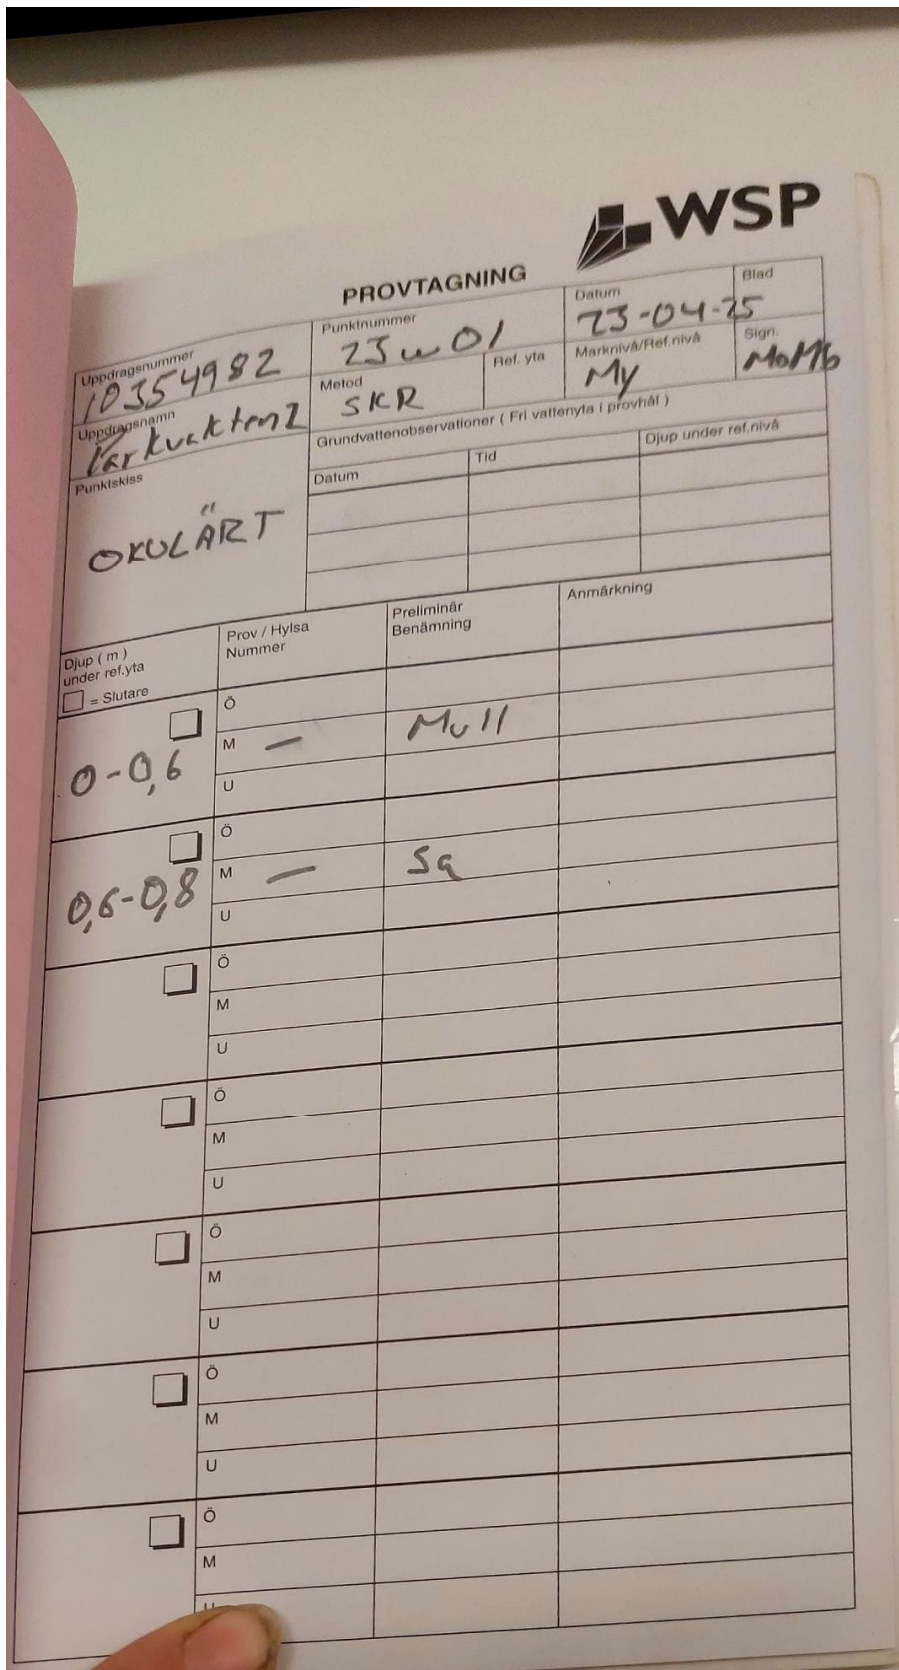 WSP
PROVTAGNING
Uppdragsnummer
10354982
Punktnummer
23W01
Datum
23-04-25
Blad
Uppdragsnamn
Parkvakten2
Metod
SKR
Ref. yta
Marknivå/Ref.nivå
My
Sign.
Punktskiss
OKULÄRT
Grundvattenobservationer ( Fri vattenyta i provhål )
Datum Tid Djup under ref.nivå
Djup ( m )
under ref.yta
= Slutare
Prov / Hylsa
Nummer
Preliminär
Benämning
Anmärkning
0-0,6
Ö
M – Mull
U
0,6-0,8
Ö
M – Sa
U
Ö
M
U
Ö
M
U
Ö
M
U
Ö
M
U
Ö
M
U